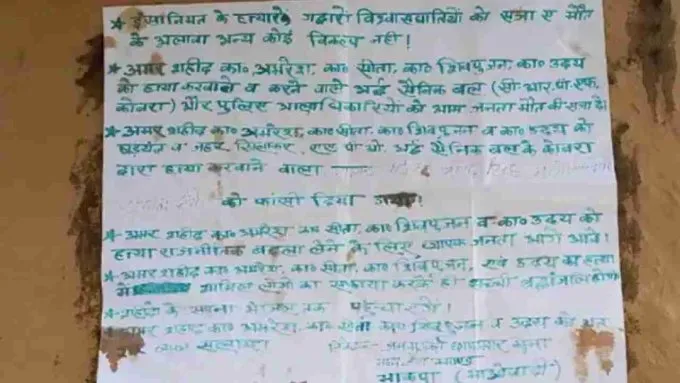 ★ इंसानियत के हत्यारों गद्दारों विश्वासघातियों को सजा ए मौत
के अलावा अन्य कोई विकल्प नहीं!
★ अमर शहीद का० अमरेश, का० सीता, का० शिवपुजन, का० उदय
को हत्या करवाने व करने वाले अर्द्ध सैनिक बल (सी.आर.पी.एफ.
कोबरा) और पुलिस आला धिकारियों को आम जनता मौत की सजा दें।
★ अमर शहीद का० अमरेश, का० सीता, का० शिवपुजन व का० उदय को
षड्यंत्र व जहर, एस० पी० ओ० अर्द्ध सैनिक बल के कोबरा
द्वारा हत्या करवाने वाला
को फांसी दिया गया!
★ अमर शहीद का० अमरेश का० सीता, का० शिवपुजन व का० उदय को
हत्या राजनीतिक बदला लेने के लिए व्यापक जनता आगे आवें!
★ अमर शहीद का० अमरेश, का० सीता, का० शिवपुजन, एवं उदय का हत्या
में शामिल लोगों का सफाया करके ही
★ शहीदों के सपना
अमर शहीद का० अमरेश, का० सीता का० शिवपुजन व उदय को
लाल सलाम!
छापामार सेना
भाकपा (माओवादी)